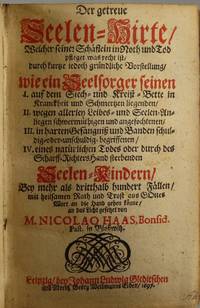 Der getreue
Seelen-Hirte/
Welcher seiner Schäflein in Noth und Tod
pfleget was recht ist/
durch kurtze iedoch gründliche Vorstellung/
wie ein Seelsorger seinen
I. auf dem Siech- und Kreist-Bette in
Kranckheit und Schmertzen liegenden/
II. wegen allerley Leibes- und Seelen-An-
liegen schwermüthigen und angefochtenen/
III. in harten Gefängniß und Banden schul-
dig-oder-unschuldig-begriffenen/
IV. eines natürlichen Todes oder durch des
Scharff-Richters Hand sterbenden
Seelen-Kindern/
Bey mehr als dritthalb hundert Fällen/
mit heilsamen Rath und Trost aus GOttes
Wort an die Hand gehen könne/
an das Licht gesetzet von
M. NICOLAO HAAS, Bonsid.
Past. in
Leipzig/ bey Johann Ludwig Gleditschen
und Moritz Georg Weidmanns Erben/ 1697.